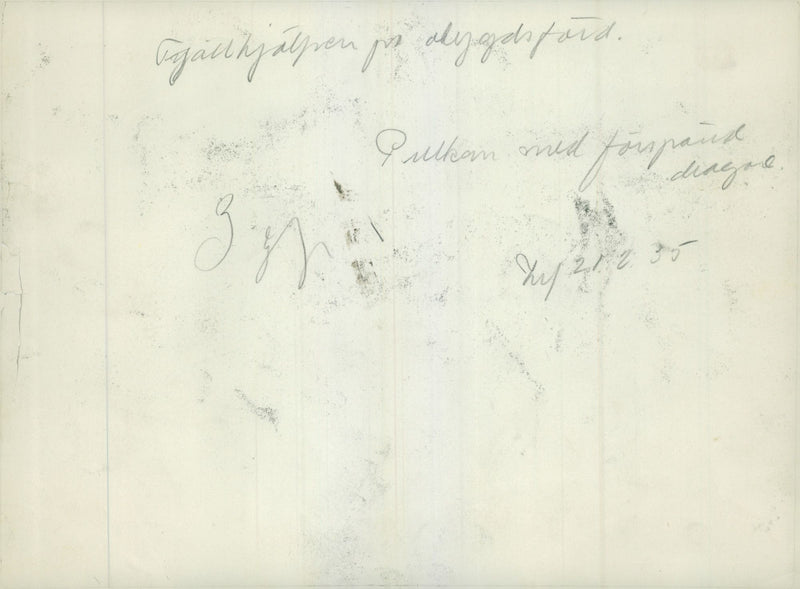 Fjällhjälpen på obygdsfärd.
Pulkan med förspänd
dragare.
21.2.35